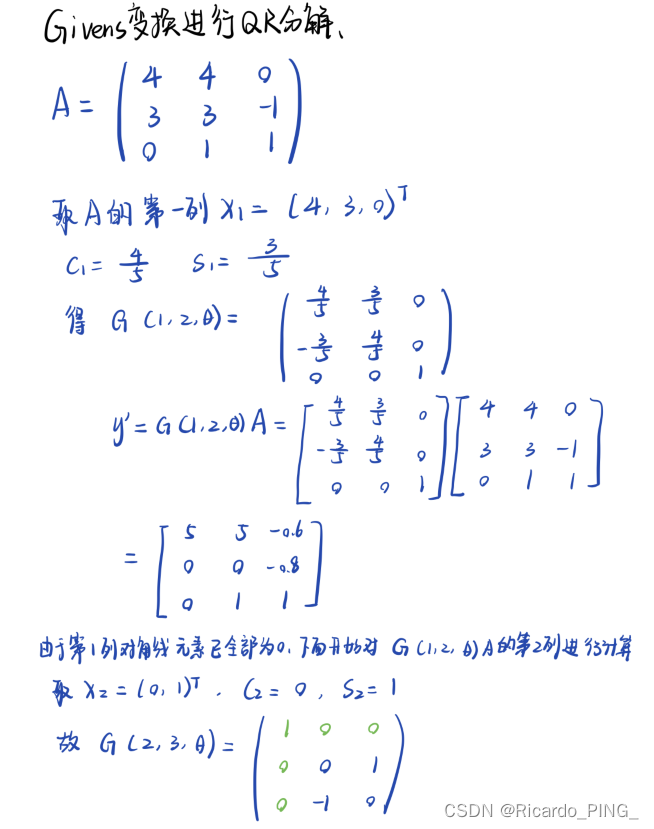 Givens变换进行QR分解、
A = ( 4 4 0
3 3 -1
0 1 1 )
取A的第一列 X₁ = (4, 3, 0)ᵀ
C₁ = 4/5 S₁ = 3/5
得 G (1, 2, θ) = ( 4/5 3/5 0
-3/5 4/5 0
0 0 1 )
y' = G(1,2,θ) A = [ 4/5 3/5 0 ] [ 4 4 0 ]
[ -3/5 4/5 0 ] [ 3 3 -1 ]
[ 0 0 1 ] [ 0 1 1 ]
= [ 5 5 -0.6
0 0 -0.8
0 1 1 ]
由于第1列对角线元素已全部为0,下面开始对 G(1,2,θ)A的第2列进行计算
取 X₂ = (0, 1)ᵀ . C₂ = 0 , S₂ = 1
故 G (2, 3, θ) = ( 1 0 0
0 0 1
0 -1 0 )
CSDN @Ricardo_PING_